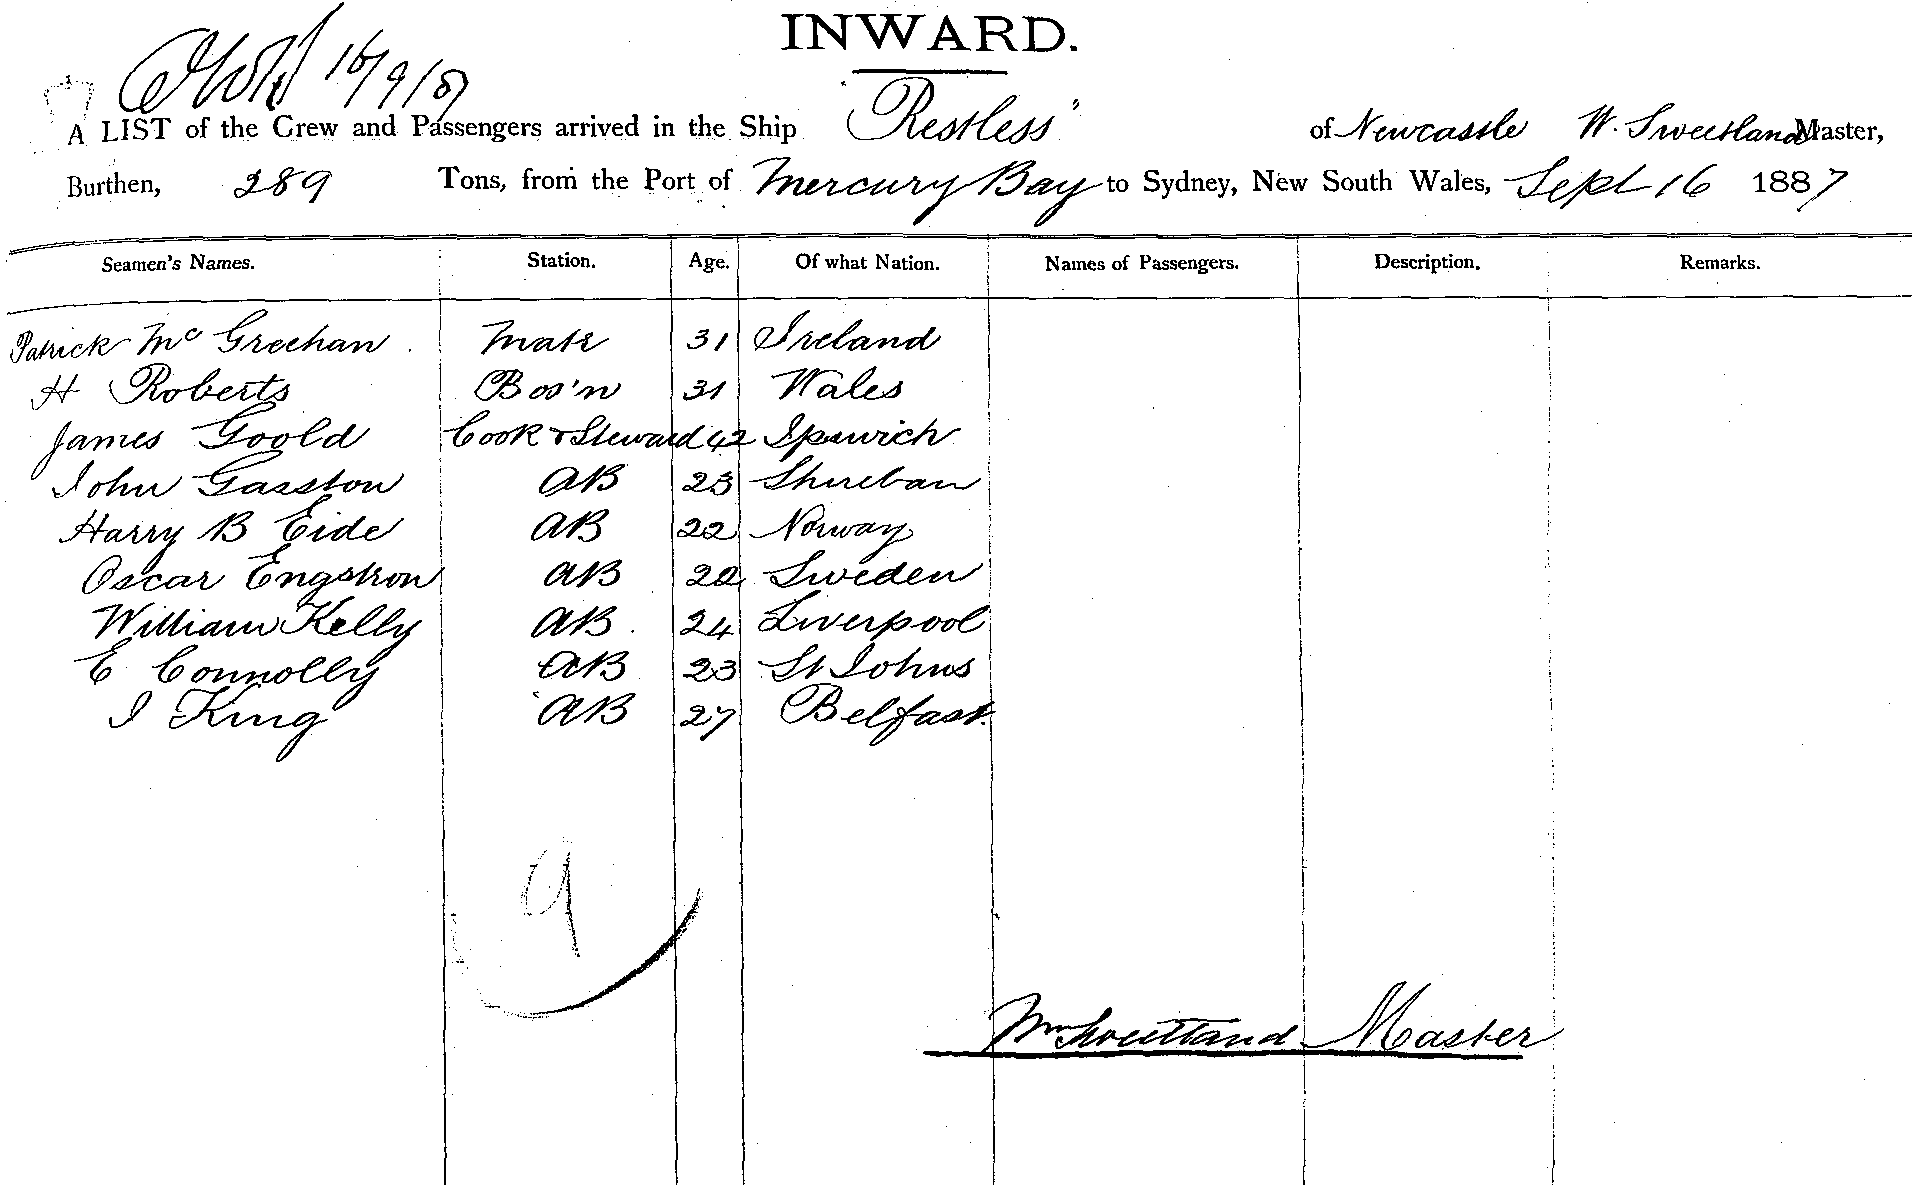 INWARD.
16/9/87
A LIST of the Crew and Passengers arrived in the Ship "Restless" of Newcastle W. Sweetland Master,
Burthen, 289 Tons, from the Port of Mercury Bay to Sydney, New South Wales, Sept 16 1887
Seamen's Names. Station. Age. Of what Nation. Names of Passengers. Description. Remarks.
Patrick Mc Greehan Mate 31 Ireland
H Roberts Bos'n 31 Wales
James Goold Cook & Steward 42 Ipswich
John Gasston AB 23
Harry B Eide AB 22 Norway
Oscar Engstron AB 22 Sweden
William Kelly AB 24 Liverpool
E Connolly AB 23 St Johns
J King AB 27 Belfast.
9
Wm Sweetland Master